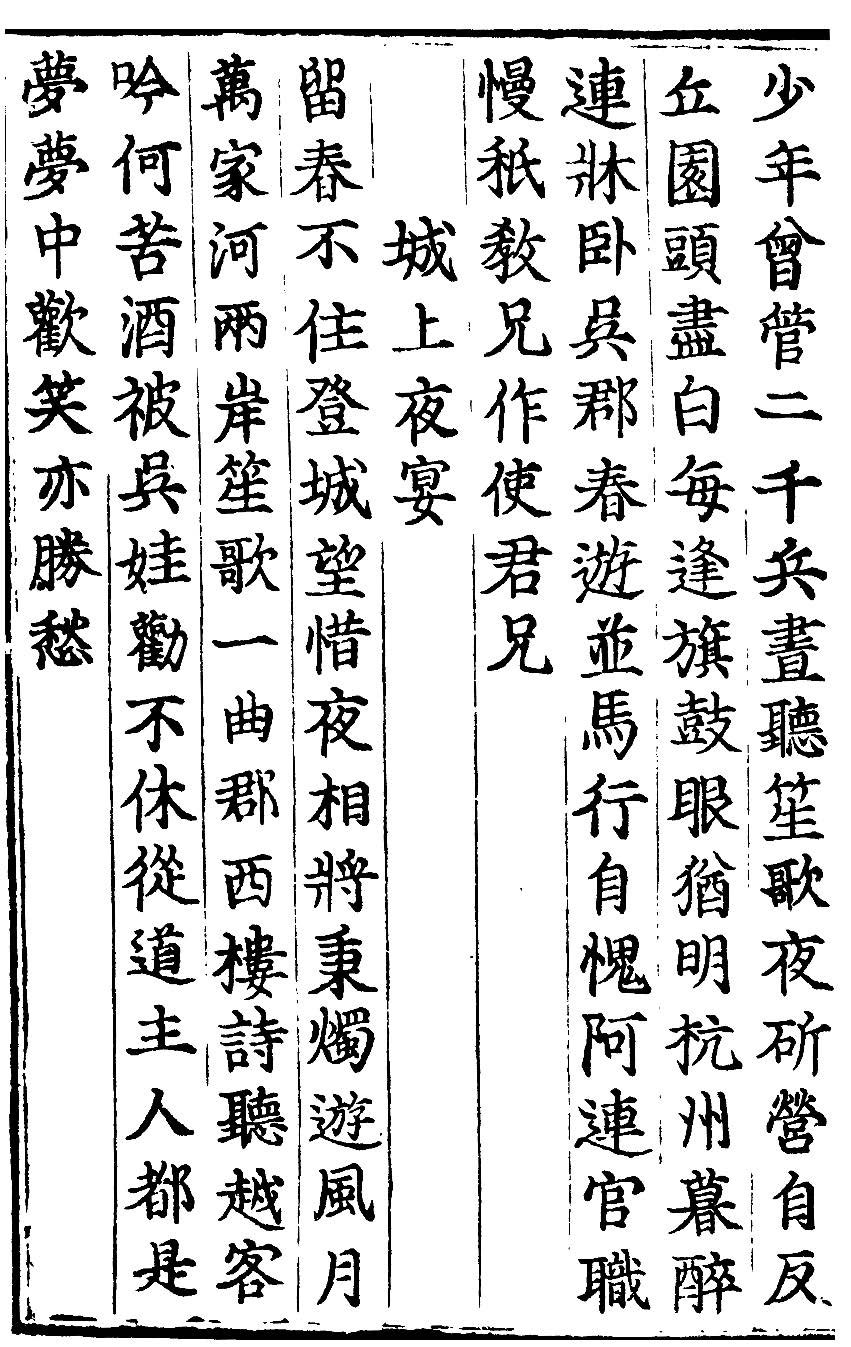 少年曾管二千兵晝聽笙歌夜斫營自反
丘園頭盡白每逢旗鼓眼猶明杭州暮醉
連牀卧吳郡春遊並馬行自愧阿連官職
慢秖教兄作使君兄
城上夜宴
留春不住登城望惜夜相將秉燭遊風月
萬家河兩岸笙歌一曲郡西樓詩聽越客
吟何苦酒被吳娃勸不休從道主人都是
夢夢中歡笑亦勝愁